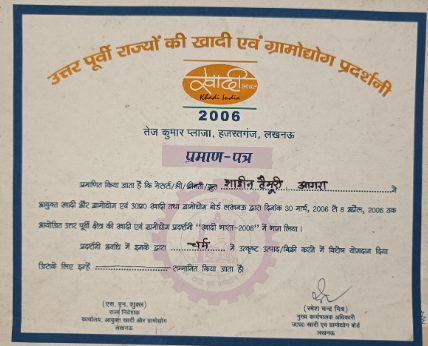 उत्तर पूर्वी राज्यों की खादी एवं ग्रामोद्योग प्रदर्शनी
खादी
Khadi India
2006
तेज कुमार प्लाजा, हजरतगंज, लखनऊ
प्रमाण-पत्र
प्रमाणित किया जाता है कि मेसर्स/श्री/श्रीमती/ शाहीन तैमूरी आगरा ने
आयुक्त खादी और ग्रामोद्योग एवं उ0प्र0 खादी तथा ग्रामोद्योग बोर्ड लखनऊ द्वारा दिनांक 30 मार्च, 2006 से 8 अप्रैल, 2006 तक
आयोजित उत्तर पूर्वी क्षेत्र की खादी एवं ग्रामोद्योग प्रदर्शनी "खादी भारत-2006" में भाग लिया।
प्रदर्शनी अवधि में इनके द्वारा चर्म में उत्कृष्ट उत्पाद/बिक्री करने में विशेष योगदान दिया
जिसके लिए इन्हें सम्मानित किया जाता है।
(एस. एन. शुक्ला) (रमेश चन्द्र मिश्र)
राज्य निदेशक मुख्य कार्यपालक अधिकारी
कार्यालय, आयुक्त खादी और ग्रामोद्योग उ0प्र0 खादी एवं ग्रामोद्योग बोर्ड
लखनऊ लखनऊ